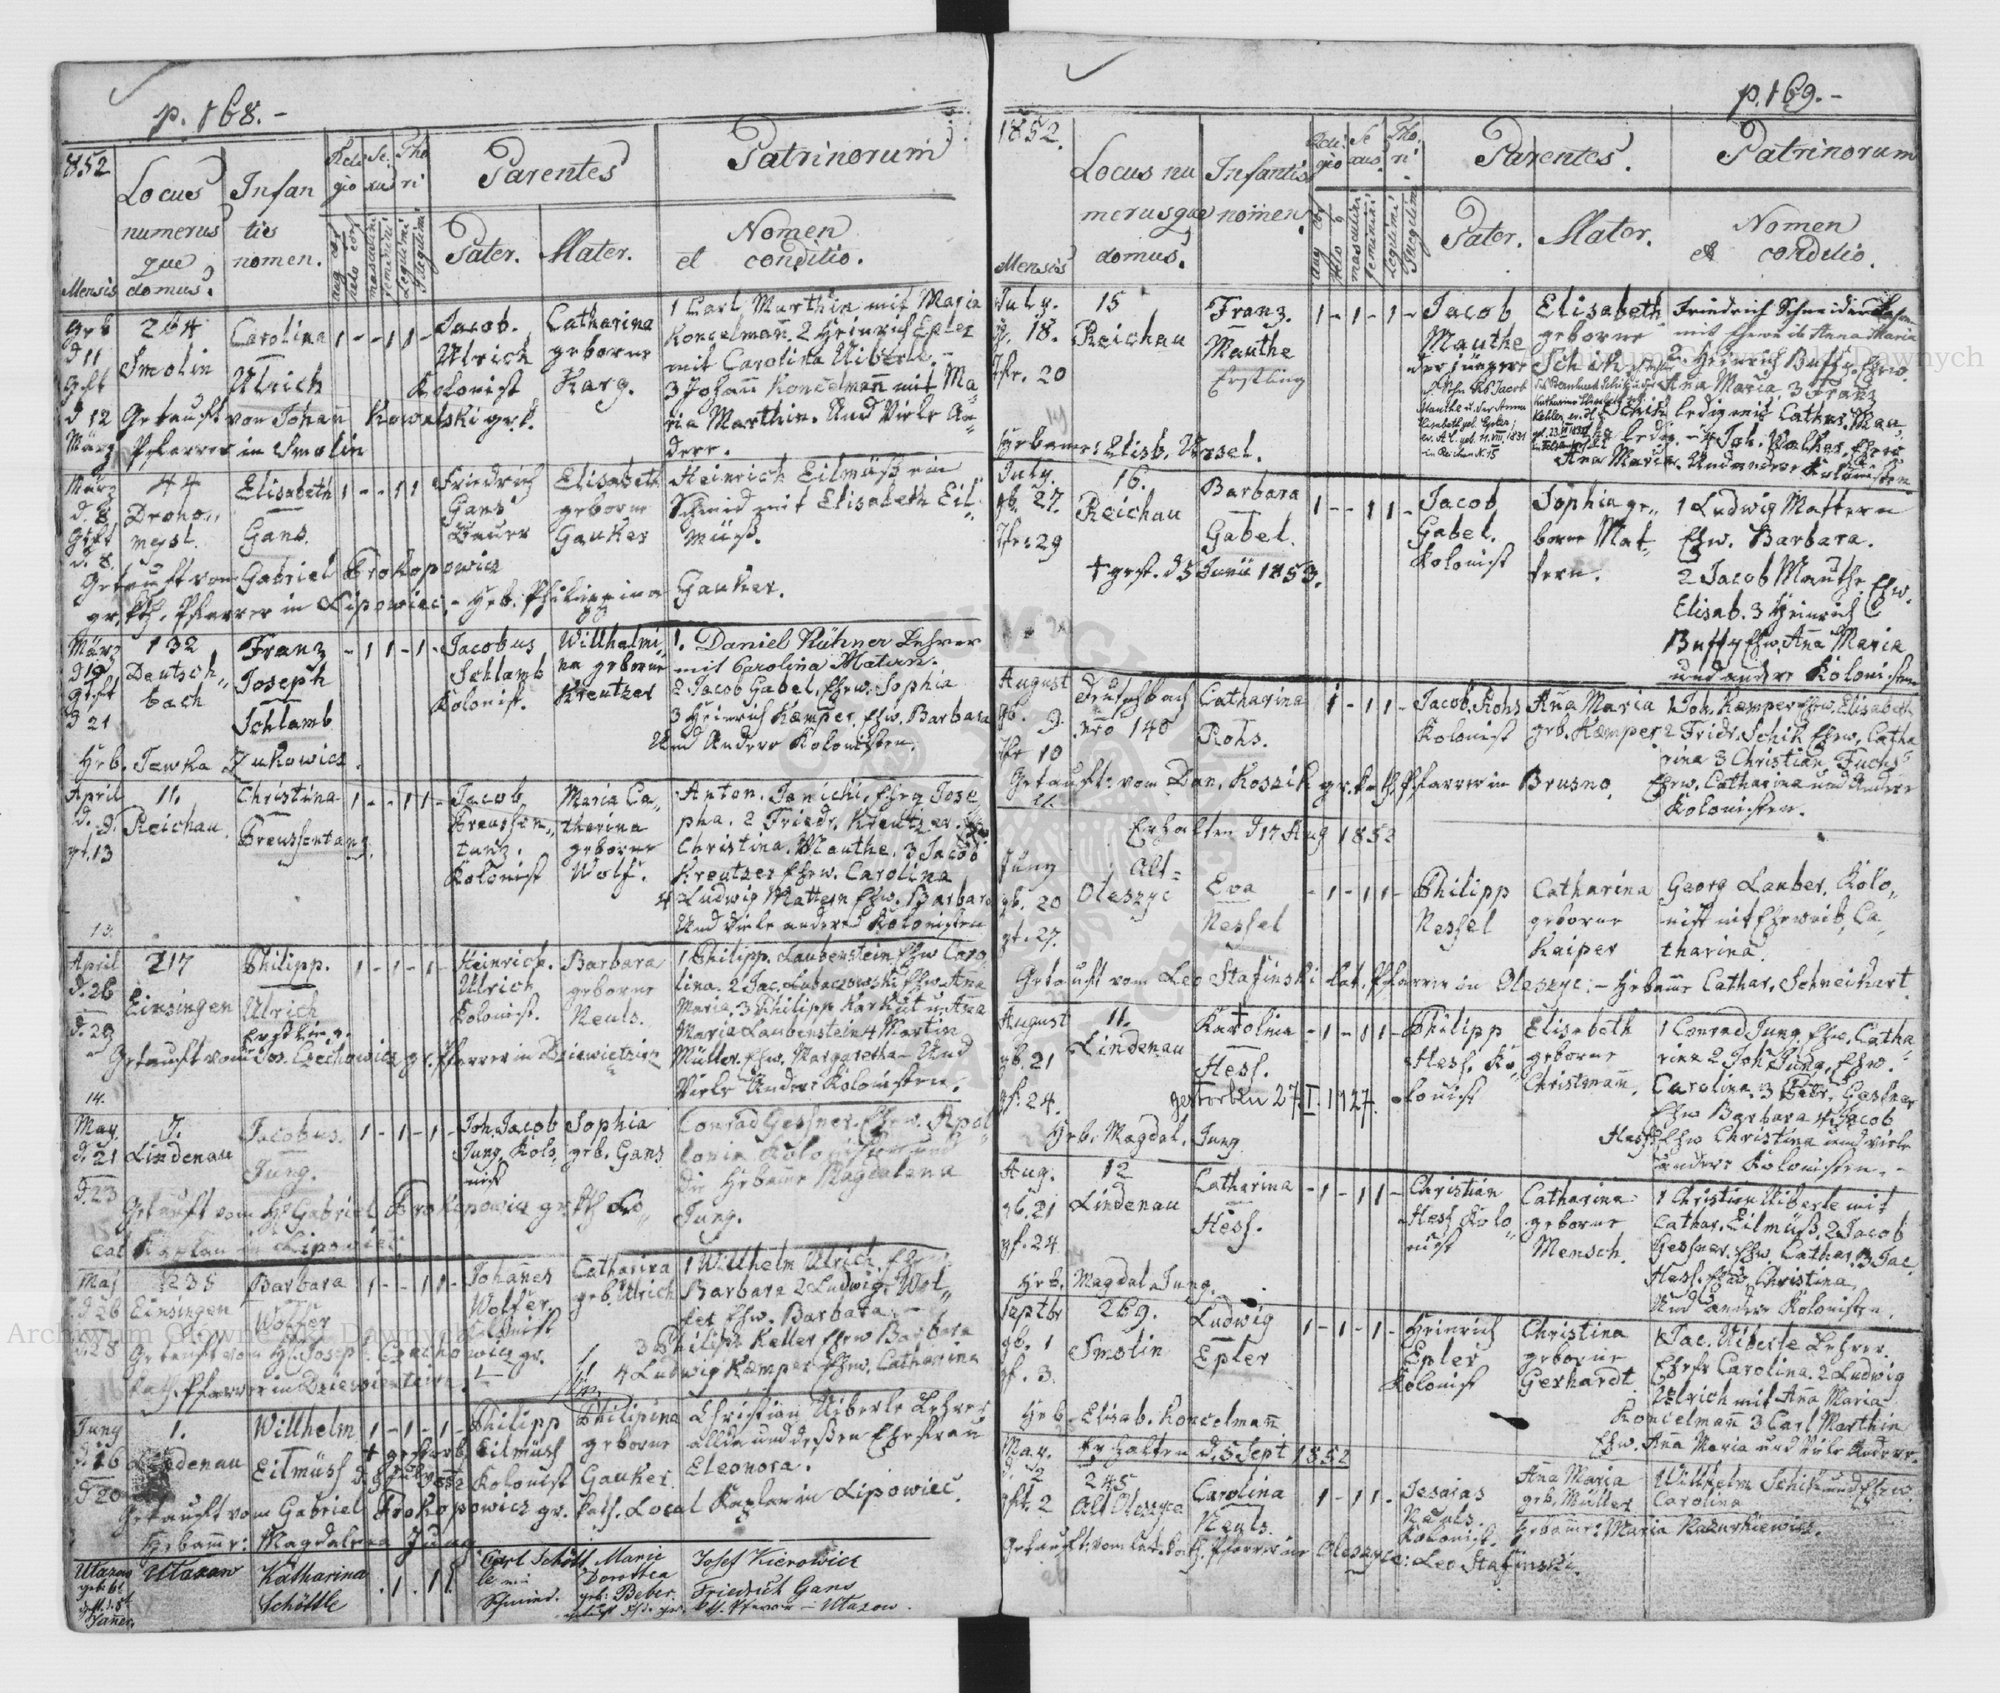 p. 168.-
1852
Locus numerus que domus.
Infantis nomen.
Religio
Sexus
Thori
Parentes
Patrinorum
Mensis
aug. conf.
helv. conf.
masculini
feminini
Legitimi
Illegitimi
Pater.
Mater.
Nomen et conditio.
geb d 11 gtft d 12 März
264
Smolin
Carolina
Ulrich
1 - - 1 1 -
Jacob.
Ulrich
Kolonist
Catharina
geborne
Karg.
1 Carl Marthin mit Maria
Koncelman. 2 Heinrich Epler
mit Carolina Uiberle.
3 Johann Koncelmañ mit Ma-
ria Marthin. Und Viele An-
dere.
Getauft von Johañ Kowalski gr. k.
Pfarrer in Smolin
März
d. 8
Gtft
d. 8.
44
Droho-
mysl.
Elisabeth
Gans.
1 - - 1 1
Friedrich
Gans
Bauer
Elisabeth
geborne
Gauker
Heinrich Eilmüß ein
Schmid mit Elisabeth Eil-
müß.
Getauft von Gabriel Prokopowicz
gr. kth. Pfarrer in Lipowiec. - Heb. Philippina Gauker.
März
d 19
gtft
d 21
132
Deutsch-
bach
Franz
Joseph
Schlamb
- 1 1 - 1 -
Jacobus
Schlamb
Kolonist.
Willhelmi-
na geborne
Kreutzer
1. Daniel Kühner Lehrer
mit Carolina Matern.
2 Jacob Gabel, Ehew. Sophia
3 Heinrich Kæmper, Ehw. Barbara
Und Andere Kolonisten.
Heb. Jewka Zukowicz.
April
d. 9.
gt. 13
11.
Reichau.
Christina
Breussentanz.
1 - - 1 1 -
Jacob
Breussen-
tanz.
Kolonist
Maria Ca-
tharina
geborne
Wolf.
Anton. Janichi, Ehew Jose
pha. 2 Friedr. Kreutzer.
Christina. Mauthe. 3 Jacob
Kreutzer Ehew. Carolina
4 Ludwig Mattern Ehw. Barbara
Und Viele andere Kolonisten
13.
April
d. 26
d. 29
217
Einsingen
Philipp.
Ulrich
Erstling.
1 - 1 - 1 -
Heinrich.
Ulrich
Kolonist.
Barbara
geborne
Neuls.
1 Philipp. Laubenstein Ehw Caro
lina. 2 Jac. Lubaczowski Ehw. Aña
Maria. 3 Philipp Karkut u. Aña
Maria Laubenstein 4 Martin
Müller. Ehw. Margaretha. Und
Viele Andere Kolonisten.
Getauft vom Jos. Czechowicz gr. Pfarrer in Dziewiecierz
14.
May
d. 21
d. 23
7.
Lindenau
Jacobus.
Jung.
1 - 1 - 1 -
Joh. Jacob
Jung, Kolo-
nist
Sophia
geb. Gans
Conrad Gessner. Ehew. Apol
lonia Kolonisten und
die Hebam̄e Magdalena
Jung.
Getauft vom H. Gabriel Prokopowicz gr. kth Lo-
cal Kaplan in Lipowiec
Maj
d. 26
d. 28
235
Einsingen
Barbara
Wolfer
1 - - 1 1 -
Johañes
Wolfer
Kolonist
Catharina
geb. Ulrich
1 Willhelm Ulrich, Ehw
Barbara 2 Ludwig Wol-
fer Ehw. Barbara. -
3 Philipp Keller Ehew Barbara
4 Ludwig Kæmper Ehw. Catharina
Getauft vom H. Joseph Czechowicz gr.
kath. Pfarrer in Dziewiecierz.
Juny
d. 16
d. 20
1.
Lindenau
Willhelm
Eilmüss
1 - 1 - 1 -
Philipp
Eilmüss
Kolonist
Philipina
geborne
Gauker.
Christian Uiberle Lehrer
allda und deßen Ehefrau
Eleonora.
Getauft vom Gabriel Prokopowicz gr. kath. Local Kaplan in Lipowiec.
Hebam̄e: Magdalena Jung.
Utazow
Katharina
Schöttle
. 1 . 1 1.
Carl Schött
le
Schmied.
Marie
Dorothea
geb: Beber.
Josef Kierowicz
Friedrich Gans
Utazow.
p. 169.-
1852.
Locus numerusque domus.
Infantis nomen.
Religio
Sexus.
Thori.
Parentes.
Patrinorum
Mensis
aug. conf.
helv. conf.
masculini
feminini
Legitimi
Illegitimi
Pater.
Mater.
Nomen et conditio.
July.
g. 18.
Tfr. 20
15
Reichau
Franz.
Mauthe
Erstling
1 - 1 - 1 -
Jacob
Mauthe
der jüngere
Elisabeth
geborne
Schik
Friedrich Schneider
mit Eheweib Anna Maria
2. Heinrich Buffy, Ehew.
Ana Maria, 3 Franz
Schik ledig mit Cathar. Mau-
the ledig. - 4 Joh. Walker, Ehew
Aña Maria. Und andere Kolonisten.
Hebame: Elisb. Ursel.
July.
gb. 27.
Tfr: 29
16.
Reichau
Barbara
Gabel.
1 - - 1 1 -
Jacob
Gabel.
Kolonist
Sophia ge-
borne Mat-
tern.
1 Ludwig Mattern
Ehw. Barbara.
2 Jacob Mauthe, Ehw.
Elisab. 3 Heinrich
Buffy Ehw. Aña Maria
und andere Kolonisten
† gest. d 5 Junii 1853.
August
gb. 9.
Tfr 10
Deutschbach
Nro 140
Catharina
Rohs.
1 - 1 1 -
Jacob Rohs
Kolonist
Aña Maria
geb. Kæmper
1 Joh. Kæmper Ehew. Elisabeth
2 Fridr. Schik Ehew. Catha
rina 3 Christian Fuchs
Ehew. Catharina und Andere
Kolonisten.
Getauft: vom Dan. Koszik gr. kath. Pfarrer in Brusno.
Erhalten d 17 Aug 1852
Juny
gb. 20
gt. 27.
Alt-
Oleszyc
Eva
Nessel
- 1 - 1 1 -
Philipp
Nessel
Catharina
geborne
Kaiper
Georg Lauber, Kolo-
nist mit Eheweib, Ca-
tharina.
Getauft vom Leo Stafinski Lat. Pfarrer in Oleszyc: - Hebam̄e Cathar. Schneikart.
August
gb. 21
gf. 24.
11.
Lindenau
Karolina
Hess.
- 1 - 1 1 -
Philipp
Hess. Ko-
lonist
Elisabeth
geborne
Christmañ.
1 Conrad Jung, Ehw. Catha-
rina 2 Joh. Jung, Ehw.
Carolina. 3 Petr. Gessner
Ehw Barbara 4 Jacob
Hess Ehw Christina und viele
andere Kolonisten. -
gestorben 27. I. 1927.
Heb. Magdal. Jung
Aug.
gb. 21
gf. 24.
12
Lindenau
Catharina
Hess.
- 1 - 1 1 -
Christian
Hess Kolo-
nist
Catharina
geborne
Mensch.
1 Christian Uiberle mit
Cathar. Eilmüß, 2 Jacob
Gessner. Ehw Cathar. 3 Jac.
Hess. Ehw. Christina.
Und andere Kolonisten.
Heb. Magdala Jung.
Septbr
gb. 1
gf. 3.
269.
Smolin
Ludwig
Epler
1 - 1 - 1 -
Heinrich
Epler
Kolonist
Christina
geborne
Gerhardt.
1 Jac. Uiberle Lehrer.
Ehefr Carolina. 2 Ludwig
Ulrich mit Aña Maria
Koncelmañ 3 Carl Marthin
Ehw. Aña Maria und Viele Andere.
Heb. Elisab. Koncelmañ
Erhalten d. 5 Sept 1852
May.
d. 2
gft. 2
245
Alt Oleszyce
Carolina
Neuls.
1 - 1 1 -
Jesaias
Neuls.
Kolonist.
Aña Maria
geb. Müller
Willhelm Schik und Ehew.
Carolina
Hebam̄e: Maria Mazurkiewicz.
Getauft: vom Lat. kath. Pfarrer in Oleszyce: Leo Stafinski.
Archiwum Główne Akt Dawnych
Archiwum Główne Akt Dawnych